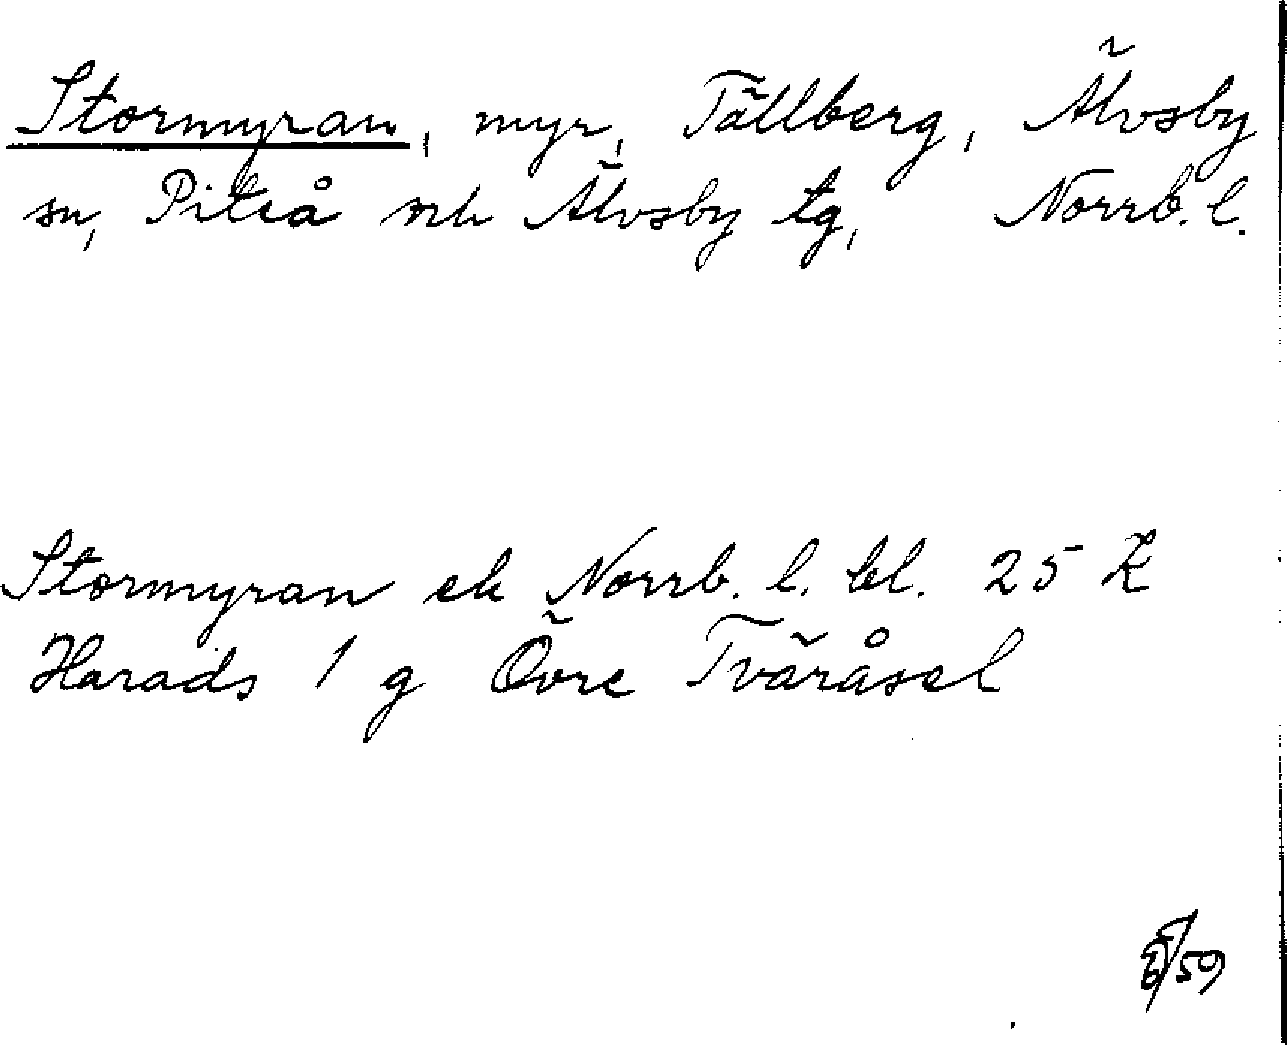 Stormyran, myr, Tällberg, Älvsby
sn, Piteå och Älvsby tg, Norrb. l.
Stormyran ek Norrb. l. bl. 25
Harads 1 g Övre Tväråsel
/59